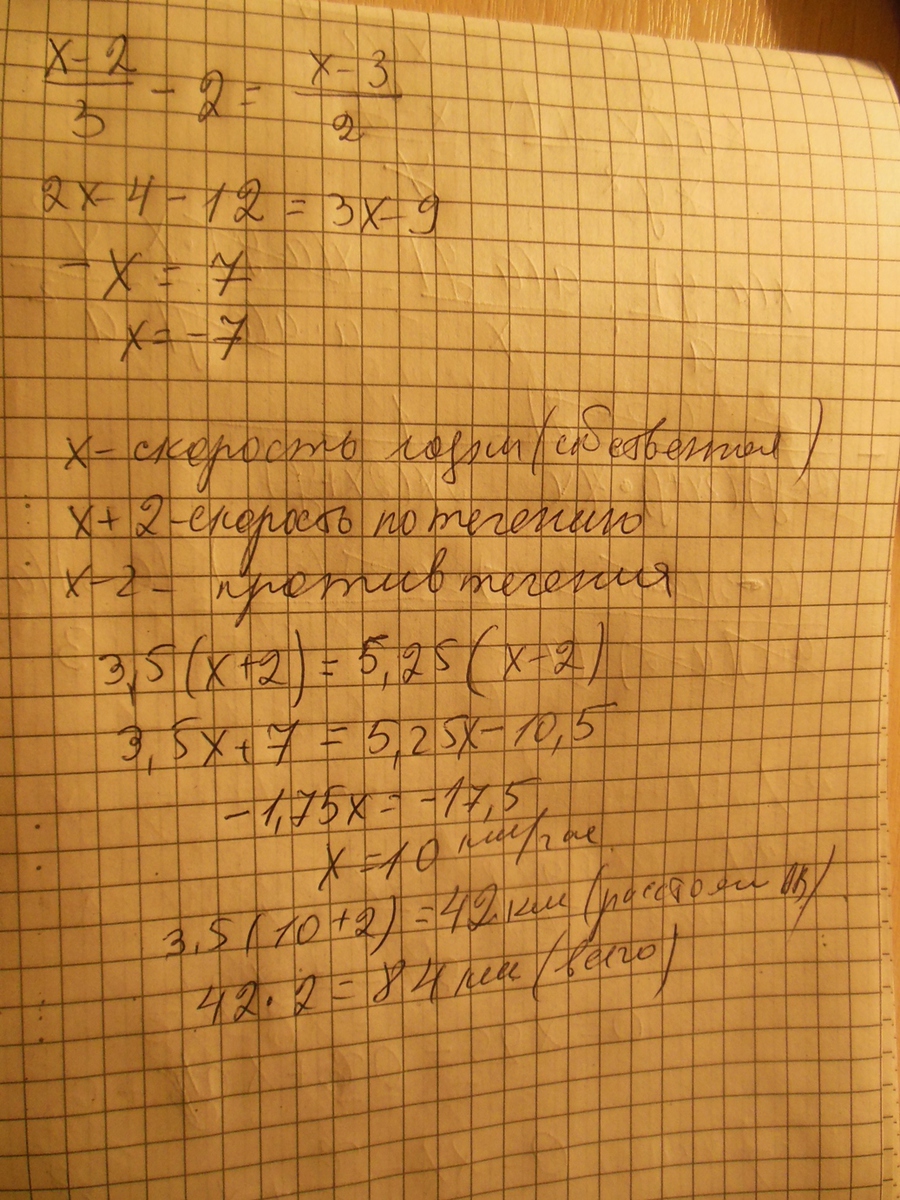 x-2/3 - 2 = x-3/2
2x-4-12 = 3x-9
-x = 7
x = -7
x- скорость лодки (собственная)
x+2-скорость по течению
x-2- против течения
3,5(x+2) = 5,25(x-2)
3,5x+7 = 5,25x-10,5
-1,75x = -17,5
x = 10 км/час
3.5(10+2) = 42 км (расстоян АВ)
42·2 = 84 км (всего)